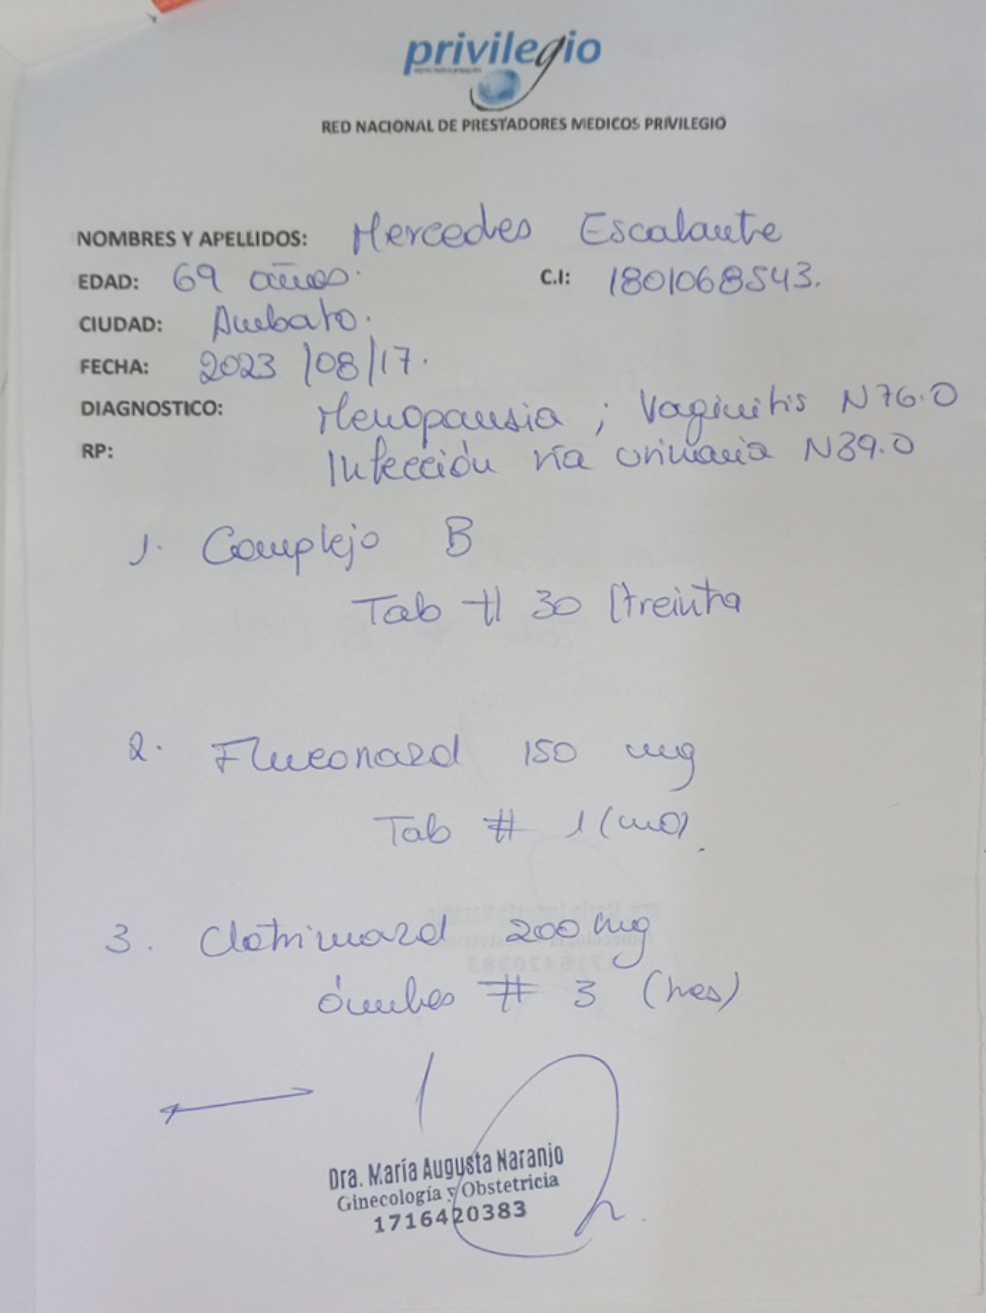 privilegio
RED NACIONAL DE PRESTADORES MEDICOS PRIVILEGIO
NOMBRES Y APELLIDOS: Mercedes Escalante
EDAD: 69 años. C.I: 1801068543.
CIUDAD: Ambato.
FECHA: 2023/08/17.
DIAGNOSTICO: Menopausia ; Vaginitis N76.0
RP: Infección vía urinaria N39.0
1. Complejo B
Tab # 30 (treinta
2. Fluconazol 150 mg
Tab # 1 (uno).
3. Clotrimazol 200 mg
óvulos # 3 (tres)
Dra. María Augusta Naranjo
Ginecología y Obstetricia
1716420383